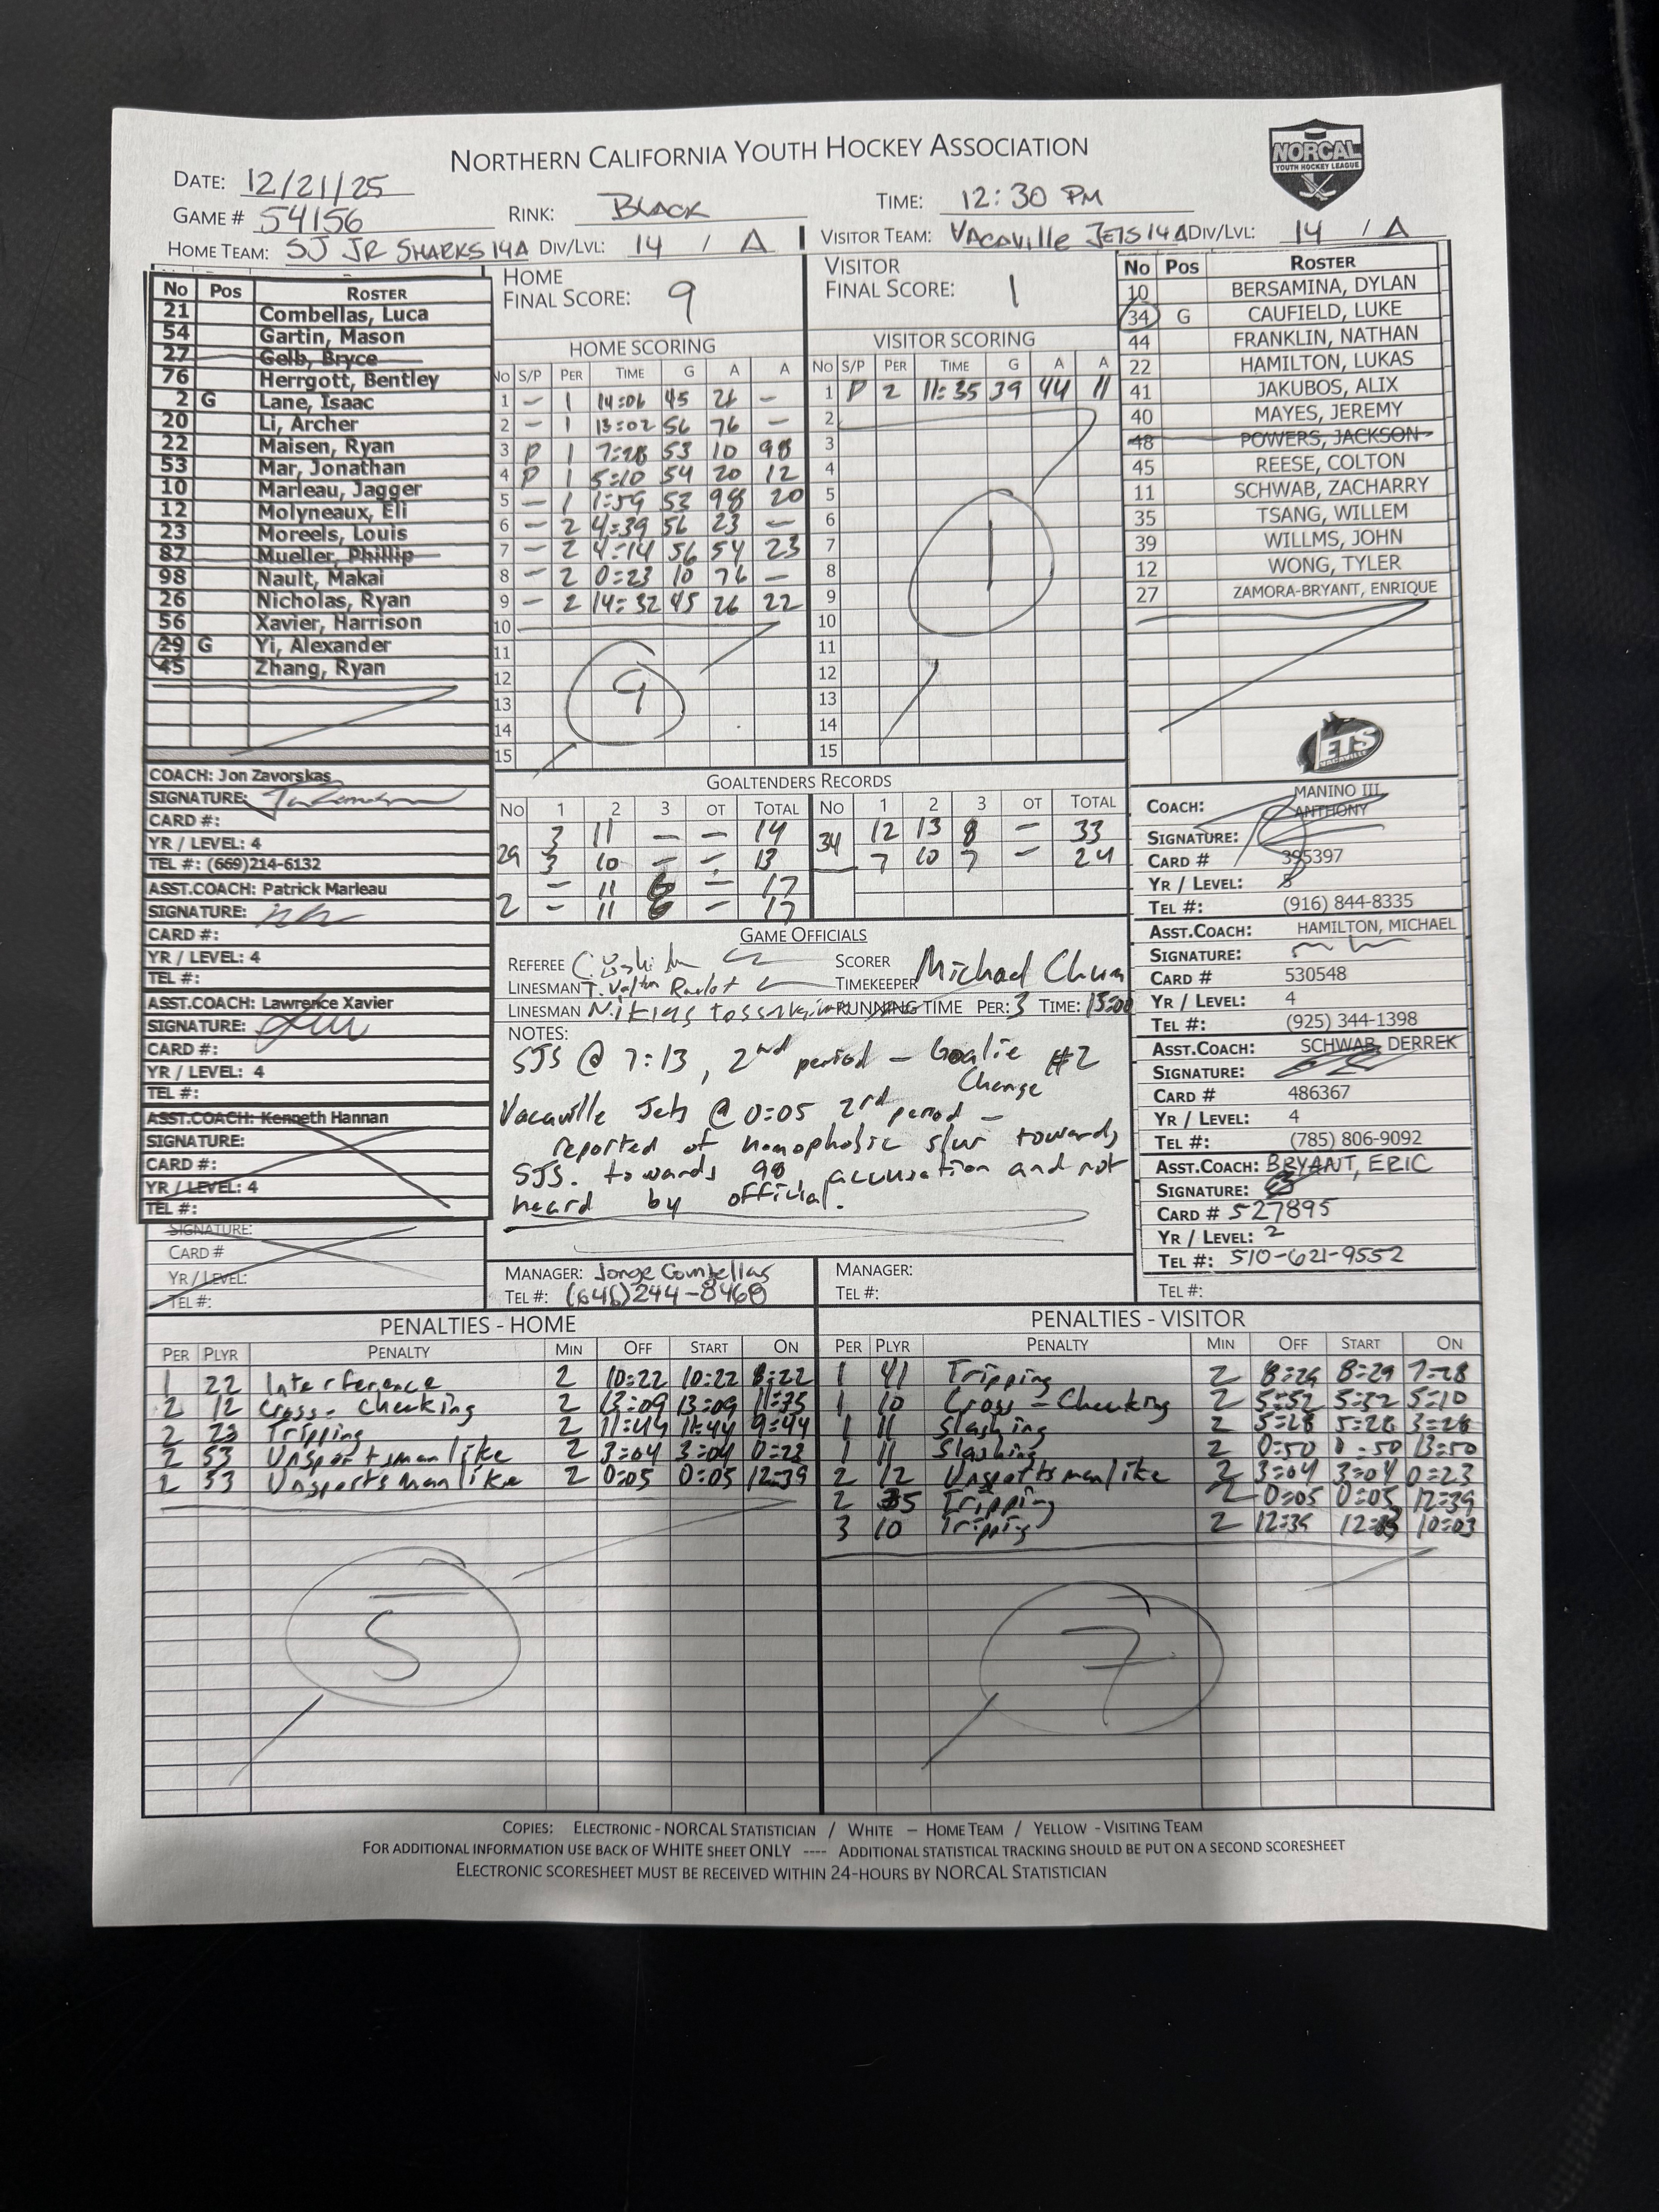 NORTHERN CALIFORNIA YOUTH HOCKEY ASSOCIATION
NORCAL
YOUTH HOCKEY LEAGUE
DATE: 12/21/25
GAME # 54156 RINK: BLACK TIME: 12:30 PM
HOME TEAM: SJ JR SHARKS 14A DIV/LVL: 14 / A VISITOR TEAM: VACAVILLE JETS 14A DIV/LVL: 14 / A
No Pos ROSTER
21 Combellas, Luca
54 Gartin, Mason
27 Gelb, Bryce
76 Herrgott, Bentley
2 G Lane, Isaac
20 Li, Archer
22 Maisen, Ryan
53 Mar, Jonathan
10 Marleau, Jagger
12 Molyneaux, Eli
23 Moreels, Louis
87 Mueller, Phillip
98 Nault, Makai
26 Nicholas, Ryan
56 Xavier, Harrison
29 G Yi, Alexander
45 Zhang, Ryan
HOME FINAL SCORE: 9
HOME SCORING
NO S/P PER TIME G A A
1 – 1 14:06 45 26 –
2 – 1 13:02 56 76 –
3 P 1 7:28 53 10 98
4 P 1 5:10 54 20 12
5 – 1 1:59 53 98 20
6 – 2 4:39 56 23 –
7 – 2 4:14 56 54 23
8 – 2 0:23 10 76 –
9 – 2 14:32 45 26 22
10
11
12
13
14
15
9
VISITOR FINAL SCORE: 1
VISITOR SCORING
NO S/P PER TIME G A A
1 P 2 11:35 39 44 11
2
3
4
5
6
7
8
9
10
11
12
13
14
15
1
No Pos ROSTER
10 BERSAMINA, DYLAN
34 G CAUFIELD, LUKE
44 FRANKLIN, NATHAN
22 HAMILTON, LUKAS
41 JAKUBOS, ALIX
40 MAYES, JEREMY
48 POWERS, JACKSON
45 REESE, COLTON
11 SCHWAB, ZACHARRY
35 TSANG, WILLEM
39 WILLMS, JOHN
12 WONG, TYLER
27 ZAMORA-BRYANT, ENRIQUE
JETS
VACAVILLE
COACH: Jon Zavorskas
SIGNATURE:
CARD #:
YR / LEVEL: 4
TEL #: (669)214-6132
ASST.COACH: Patrick Marleau
SIGNATURE:
CARD #:
YR / LEVEL: 4
TEL #:
ASST.COACH: Lawrence Xavier
SIGNATURE:
CARD #:
YR / LEVEL: 4
TEL #:
ASST.COACH: Kenneth Hannan
SIGNATURE:
CARD #:
YR / LEVEL: 4
TEL #:
SIGNATURE:
CARD #
YR / LEVEL:
TEL #:
GOALTENDERS RECORDS
NO 1 2 3 OT TOTAL NO 1 2 3 OT TOTAL
29 3 11 – – 14 34 12 13 8 – 33
3 10 – – 13 7 10 7 – 24
2 – 11 6 – 17
– 11 6 – 17
GAME OFFICIALS
REFEREE SCORER
LINESMAN TIMEKEEPER Michael Chum
LINESMAN RUNNING TIME PER: 3 TIME: 15:00
NOTES:
SJS @ 7:13, 2nd period – Goalie #2
Change
Vacaville Jets @ 0:05 2nd period –
reported of homophobic slur towards
SJS. towards 98 accusation and not
heard by official.
MANAGER: Jorge Combellas
TEL #: (646)244-8468
MANAGER:
TEL #:
COACH: MANINO III, ANTHONY
SIGNATURE:
CARD # 395397
YR / LEVEL: 5
TEL #: (916) 844-8335
ASST.COACH: HAMILTON, MICHAEL
SIGNATURE:
CARD # 530548
YR / LEVEL: 4
TEL #: (925) 344-1398
ASST.COACH: SCHWAB, DERREK
SIGNATURE:
CARD # 486367
YR / LEVEL: 4
TEL #: (785) 806-9092
ASST.COACH: BRYANT, ERIC
SIGNATURE:
CARD # 527895
YR / LEVEL: 2
TEL #: 510-621-9552
TEL #:
PENALTIES - HOME
PER PLYR PENALTY MIN OFF START ON
1 22 Interference 2 10:22 10:22 8:22
2 12 Cross-Checking 2 13:09 13:09 11:35
2 23 Tripping 2 11:44 11:44 9:44
2 53 Unsportsmanlike 2 3:04 3:04 0:23
2 53 Unsportsmanlike 2 0:05 0:05 12:39
5
PENALTIES - VISITOR
PER PLYR PENALTY MIN OFF START ON
1 41 Tripping 2 8:29 8:29 7:28
1 10 Cross-Checking 2 5:52 5:52 5:10
1 11 Slashing 2 5:28 5:28 3:28
1 11 Slashing 2 0:50 0:50 13:50
2 12 Unsportsmanlike 2 3:04 3:04 0:23
2 35 Tripping 2 0:05 0:05 12:39
3 10 Tripping 2 12:39 10:03
7
COPIES: ELECTRONIC - NORCAL STATISTICIAN / WHITE – HOME TEAM / YELLOW - VISITING TEAM
FOR ADDITIONAL INFORMATION USE BACK OF WHITE SHEET ONLY ---- ADDITIONAL STATISTICAL TRACKING SHOULD BE PUT ON A SECOND SCORESHEET
ELECTRONIC SCORESHEET MUST BE RECEIVED WITHIN 24-HOURS BY NORCAL STATISTICIAN